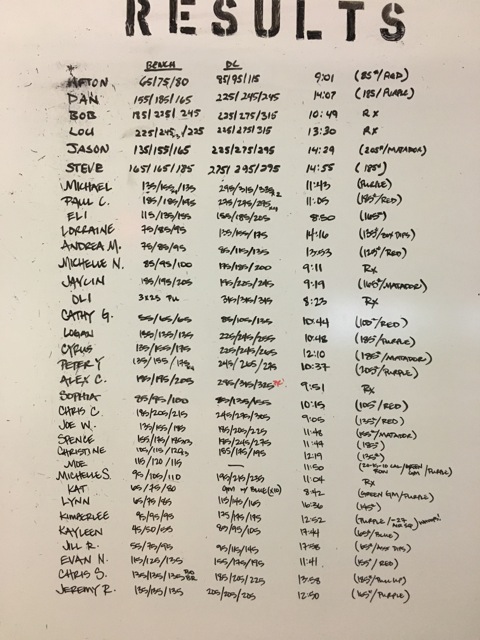 RESULTS
BENCH DC
AFTON 65/75/80 85/95/115 9:01 (85#/RED)
DAN 155/185/165 225/245/245 14:07 (185/PURPLE)
BOB 185/225/245 225/275/315 10:49 RX
LOU 225/245/225 225/275/315 13:30 RX
JASON 135/155/165 225/275/295 14:29 (205#/MATADOR)
STEVE 165/165/185 275/295/295 14:55 (185#)
MICHAEL 11:43 (PURPLE)
PAUL C. 185/185/195 11:05 (185#/RED)
ELI 115/135/155 155/185/205 8:50 (165#)
LORRAINE 75/85/95 135/155/175 14:16
ANDREA M. 75/85/95 85/115/135 13:53 (125#/RED)
MICHELLE N. 85/95/100 175/185/200 9:11 RX
JAYLIN 185/195/205 195/225/245 9:19 (165#/MATADOR)
OLI 3X25 PU 345/345/345 8:23 RX
CATHY G. 55/65/65 85/105/135 10:44 (100#/RED)
LOGAN 135/135/135 225/245/255 10:48 (185/PURPLE)
CYRUS 135/155/175 225/245/265 12:10 (185#/MATADOR)
PETER Y 135/155/175 245/265/275 10:37 (205#/PURPLE)
ALEX C. 185/195/205 295/315/325 PR 9:51 RX
SOPHIA 85/95/100 10:15 (105#/RED)
CHRIS C. 185/205/215 245/275/305 9:05 (135#/RED)
JOE W. 135/155/185 185/205/225 11:48 (155#/MATADOR)
SPENCE 195/245/275 11:49 (185#)
CHRISTINE 185/195/195 12:19 (135#)
MOE 115/120/115 — 11:50
MICHELLE S. 95/105/110 195/215/235 11:04 RX
KAT 65/75/80 W/ BLUE (X10) 8:42 (GREEN GM/PURPLE)
LYNN 65/75/85 115/145/165 16:36
KIMBERLEE 95/95/95 175/175/175 12:52
KAYLEEN 45/50/55 85/95/105 17:44 (65#/BLUE)
JILL R. 55/75/95 95/115/145 17:58
EVAN N. 115/125/135 155/175/195 11:41 (155#/RED)
CHRIS S. 135/135/135 185/205/225 13:58 (185/PULL UP)
JEREMY R. 135/135/135 205/205/205 12:50 (165#/PURPLE)